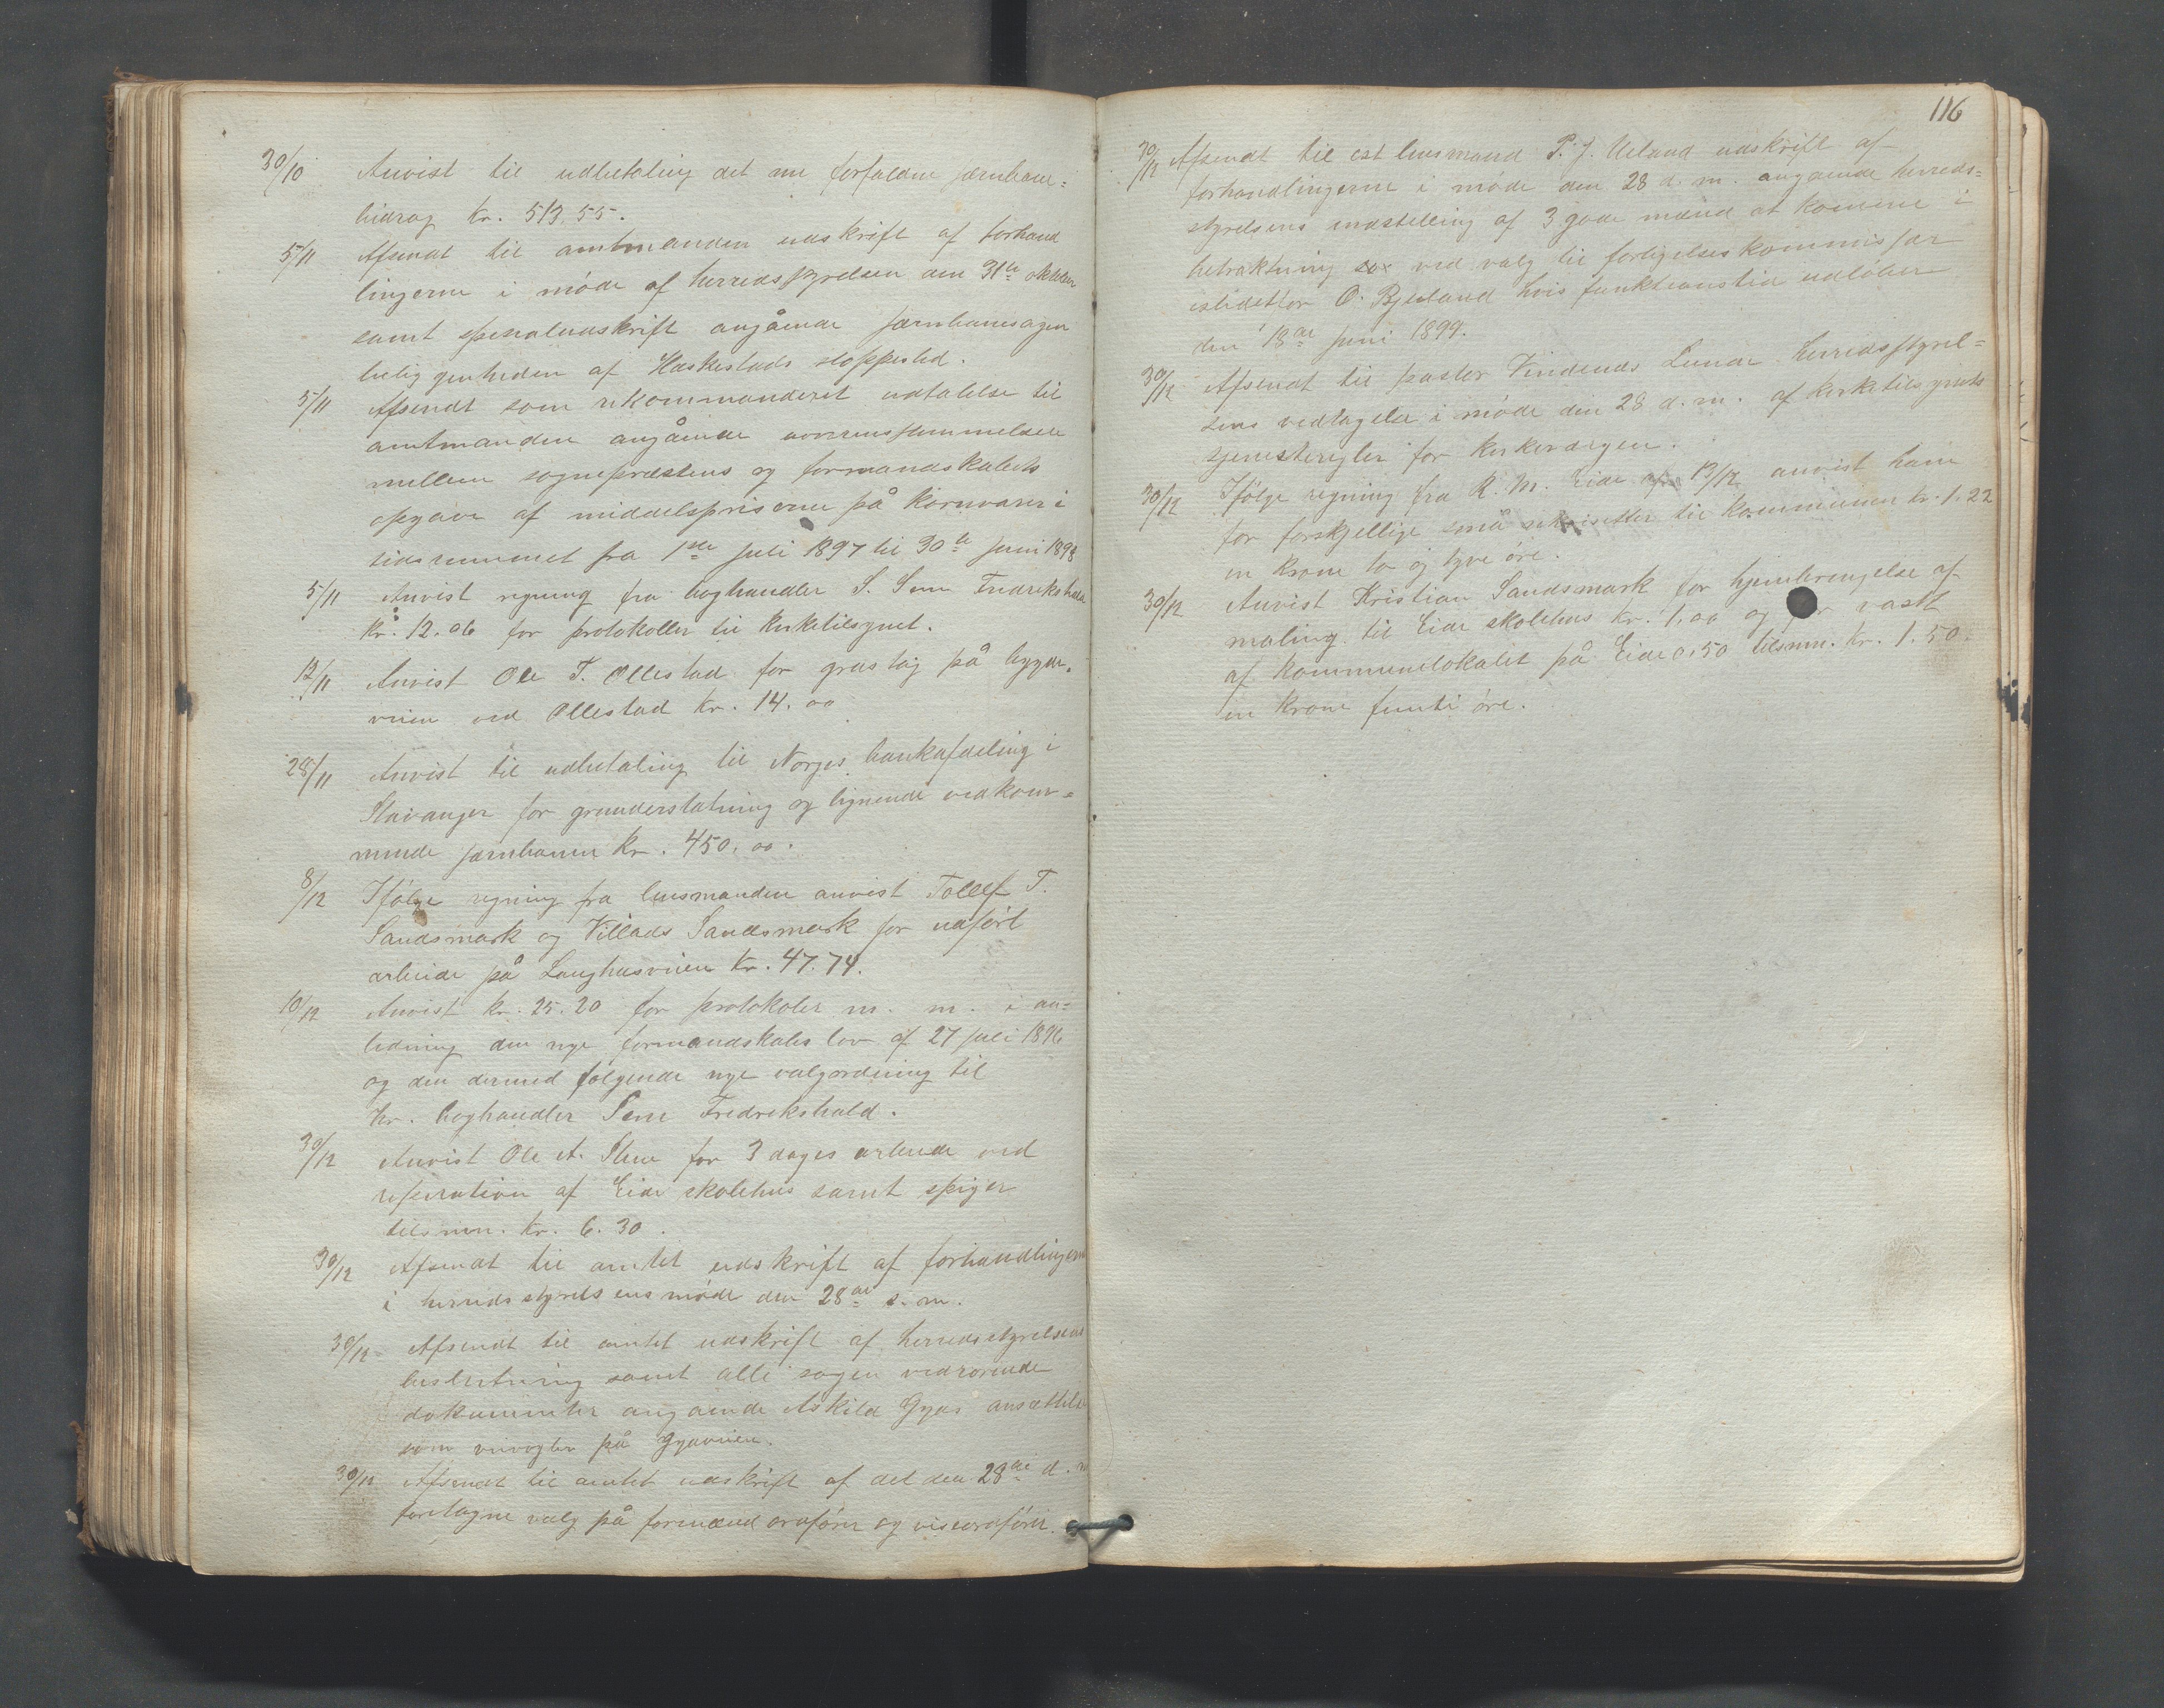 30/10 Anvist til udbetaling det nu forfaldne jærnbane=
bidrag kr. 513.55.
5/11 Afsendt til amtmanden udskrift af forhand
lingerne i møde af herredsstyrelsen den 31te oktober
samt spesialudskrift angående jærnbanesagen
beliggenheden af Heskestads stoppested.
5/11 Afsendt som rekommanderet udtalelse til
amtmanden angående uoverensstemmelsen
mellem sogneprestens og formandskabets
opgave af middelspriserne på kornvarer i
tidsrummet fra 1ste juli 1897 til 30te juni 1898
5/11 Anvist regning fra boghandler S. Sem Fredrikshald
kr. 12.06 for protokoller til kirketilsynet.
12/11 Anvist Ole T. Ollestad for grustag på bygde=
veien ved Ollestad kr. 14.00
28/11 Anvist til udbetaling til Norges bankafdeling i
Stavanger for grunderstatning og lignende vedkom=
mende jærnbanen kr. 450.00.
8/12 Ifølge regning fra lensmanden anvist Tollef T.
Sandsmark og Villads Sandsmark for udført
arbeide på Langhusveien kr. 47.74.
10/12 Anvist kr. 25.20 for protokoler m. m. i an=
ledning den nye formandskabs lov af 27 juli 1896
og den dermed følgende nye valgordning til
hr. boghandler Sem Fredrikshald.
30/12 Anvist Ole A. for 3 dages arbeide ved
reperation af Eide skolehus samt spiger
tilsmn. kr. 6.30.
30/12 Afsendt til amtet udskrift af forhandlingerne
i herredsstyrelsens møde den 28de d. m.
30/12 Afsendt til amtet udskrift af herredsstyrelsens
beslutning samt alle sagen vedrørende
dokumenter angående Askild Gyas ansættelse
som veivogter på Gyaveien.
30/12 Afsendt til amtet udskrift af det den 28de d. m
foretagne valg på formænd ordfører og viseordfører.
116
30/12 Afsendt til cst lensmand P. J. Ueland udskrift af
forhandlingerne i møde den 28 d. m. angående herreds=
styrelsens indstilling af 3 gode mænd at komme i
betraktning ved valg til forligelseskommissær
istedetfor O. Bjuland hvis funktionstid udløber
den 18de juni 1899.
30/12 Afsendt til pastor Vindenæs Lunde herredsstyrel=
sens vedtagelse i møde den 28 d. m. af kirketilsynets
tjenesteregler for kirkeværgen.
30/12 Ifølge regning fra R. M. Eide 13/12 anvist ham
for forskjellige små rekvisetter til kommunen kr. 1.22
en krone to og tyve øre.
30/12 Anvist Kristian Sandsmark for hjembringelse af
maling til Eide skolehus kr. 1,00 og for vask
af kommunelokalet på Eide 0.50 tilsmn. kr. 1.50.
en krone femti øre.